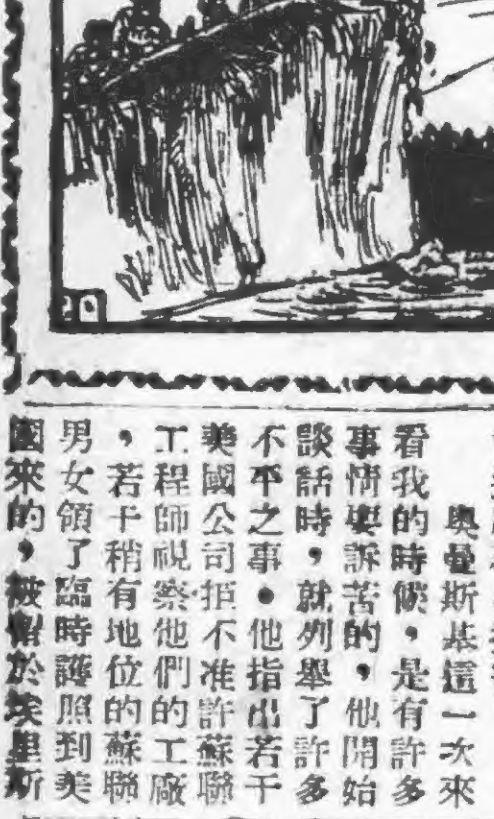 奧曼斯基這一次來
看我的時候，是有許多
事情要訴苦的，他開始
談話時，就列舉了許多
不平之事。他指出若干
美國公司拒不准許蘇聯
工程師視察他們的工廠
，若干稍有地位的蘇聯
男女領了臨時護照到美
國來的，被留於埃里斯